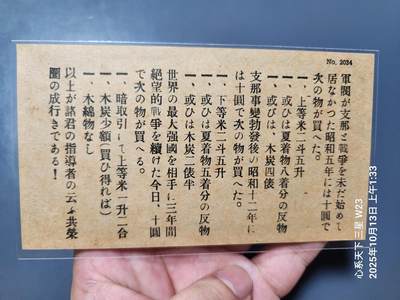 No. 2034
軍閥が支那と戰爭を未だ始めし
居なかつた昭和五年には十圓で
次の物が買へた。
一、上等米二斗五升
一、或ひは夏着物八着分の反物
一、或ひは、木炭四俵
支那事變勃發後の昭和十二年に
は十圓で次の物が買へた。
一、下等米二斗五升
一、或ひは夏着物五着分の反物
一、或ひは木炭二俵半
世界の最大強國を相手に三年間
絕望的戰爭を續けた今日、十圓
で次の物が買へる。
一、暗取引にて上等米一升二合
一、木炭少額(買ひ得れば)
一、木綿物なし
以上が諸君の指導者の云ふ共榮
圈の成行きである！
心系天下三星 W23
2025年10月13日 上午1:33